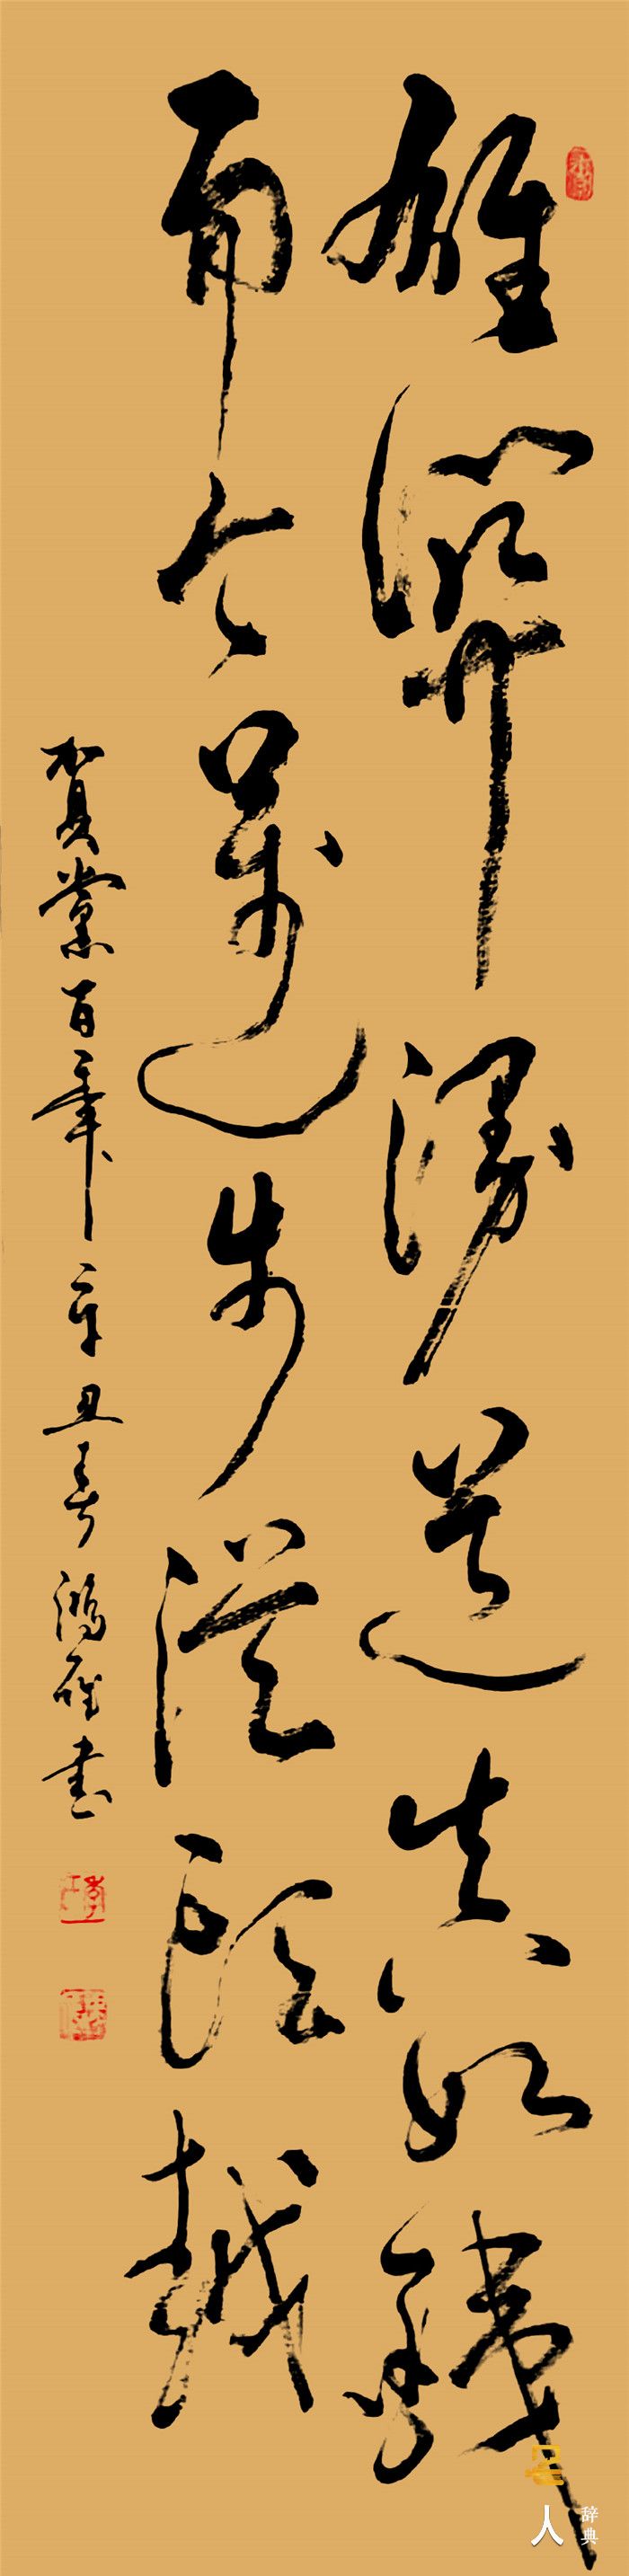 雄關漫道真如鐵
而今邁步從頭越
賀黨百年辛丑春鴻雁書
名人辞典